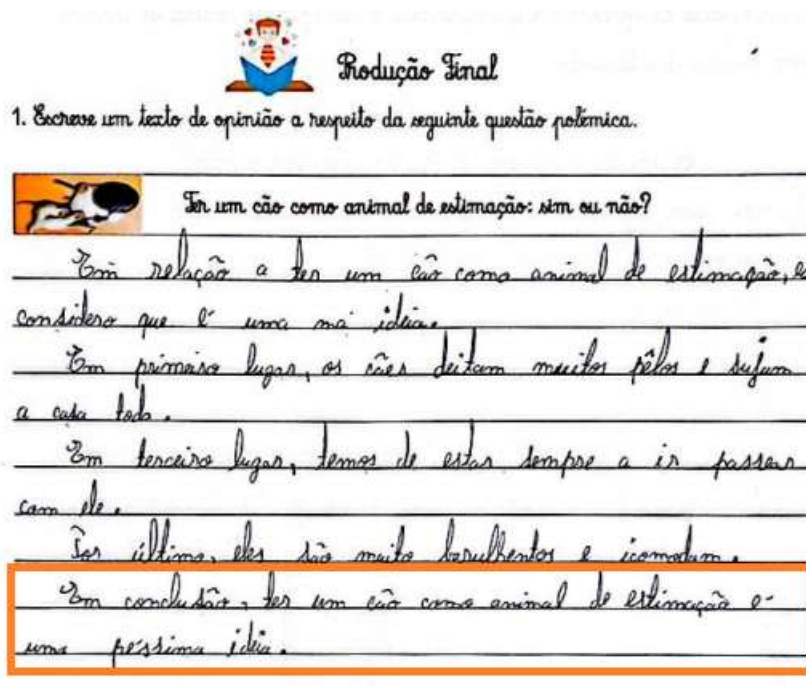 Produção Final
1. Escreve um texto de opinião a respeito da seguinte questão polémica.
Ter um cão como animal de estimação: sim ou não?
Em relação a ter um cão como animal de estimação, e
considero que é uma má ideia.
Em primeiro lugar, os cães deitam muitos pêlos e sujam
a casa toda.
Em terceiro lugar, temos de estar sempre a ir passear
com ele.
Por último, eles são muito barulhentos e icomodam.
Em conclusão, ter um cão como animal de estimação é
uma péssima ideia.